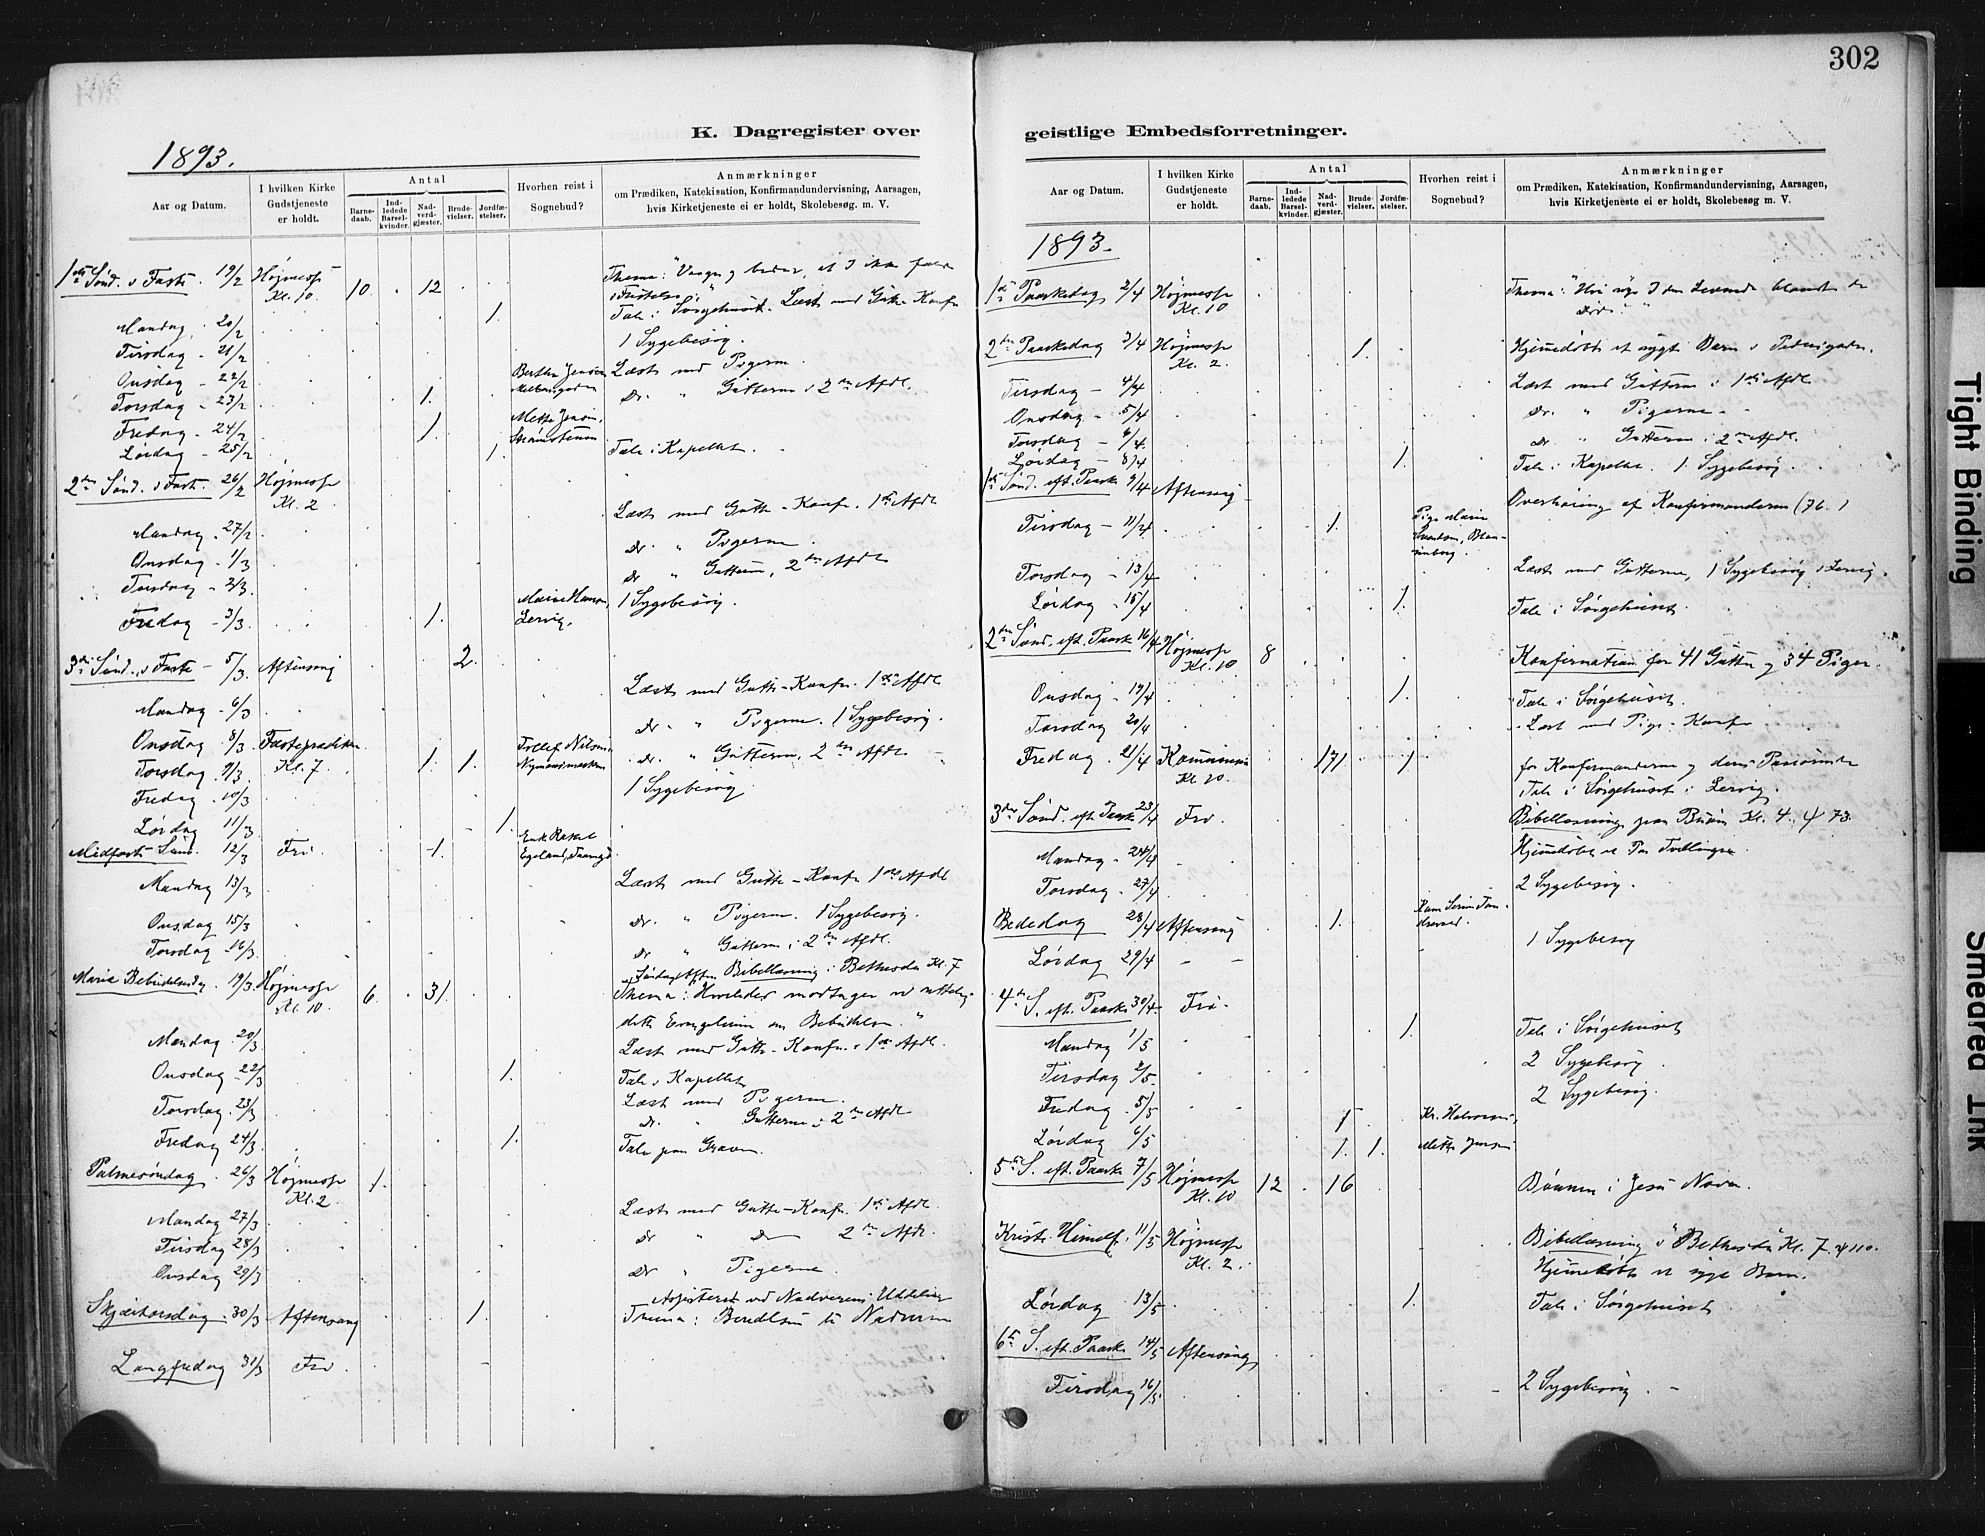 302
K. Dagregister over
geistlige Embedsforretninger.
1893.
Aar og Datum.
I hvilken Kirke Gudstjeneste er holdt.
Antal
Barnedaab.
Indledede Barselkvinder.
Nadverdgjæster.
Brudevielser.
Jordfæstelser.
Hvorhen reist i Sognebud?
Anmærkninger
om Prædiken, Katekisation, Konfirmandundervisning, Aarsagen,
hvis Kirketjeneste ei er holdt, Skolebesøg. m. V.
1ste Sønd. i Faste 19/2 Højmesse Kl. 10. 10 12 Thema: "Vaager og beder, at I ikke
Mandag 20/2 1. Tale i Sørgehuset. Læst med Gutte-Konf.
Tirsdag - 21/2 1 Sygebesøg.
Onsdag - 22/2 Læst med Pigerne.
Torsdag - 23/2 1. Berthe Jensen Do. " Gutterne i 2den Afdl.
Fredag - 24/2 1. Mette Jensen,
Lørdag - 25/2 1. Tale i Kapellet.
2den Sønd. i Faste. 26/2 Højmesse Kl. 2
Mandag. 27/2 Læst med Gutte-Konf. 1ste Afdl
Onsdag - 1/3 Do. " Pigerne.
Torsdag - 2/3. Do " Gutterne, 2den Afdl
Fredag - 3/3. 1. Marie Lervig. 1 Sygebesøg.
3die Sønd. i Faste - 5/3. Aftensang 2.
Mandag - 6/3 Læst med Gutte-Konf. 1ste Afdl
Onsdag 8/3 Fasteprædiken Kl. 7. Do. " Pigerne. 1 Sygebesøg.
Torsdag 9/3. 1. 1. Tollef Nilsen Do. " Gutterne, 2den Afdl
Fredag. 10/3 1 Sygebesøg.
Lørdag 11/3 1.
Midfaste Sønd. 12/3 Fri 1. Enke Egeland,
Mandag 13/3 Læst med Gutte-Konf. 1ste Afdl
Onsdag 15/3 Do. " Pigerne. 1 Sygebesøg.
Torsdag 16/3. Do " Gutterne i 2den Afdl.
Bibellæsning i Bethesda Kl. 7
Maria Bebudelsesdag. 19/3. Højmesse Kl. 10. 6. 31. Thema: Hvorledes modtager vi
dette Evangelium om Bebudelsen."
Mandag. 20/3 Læst med Gutte-Konf. 1ste Afdl.
Onsdag 22/3 1. Tale i Kapellet
Torsdag. 23/3 Læst med Pigerne.
Do. Gutterne i 2den Afdl
Fredag 24/3 1. Tale paa Graven.
Palmesøndag. 26/3 Højmesse Kl. 2 1.
Mandag 27/3 Læst med Gutte-Konf. 1ste Afdl.
Tirsdag 28/3 Do " Do 2den Afdl.
Onsdag 29/3 Do " Pigerne.
Assisteret ved Nadverens Uddeling
Skjærtorsdag. 30/3 Aftensang 1. Thema: til Nadveren
Langfredag 31/3 Fri.
Aar og Datum.
I hvilken Kirke Gudstjeneste er holdt.
Antal
Barnedaab.
Indledede Barselkvinder.
Nadverdgjæster.
Brudevielser.
Jordfæstelser.
Hvorhen reist i Sognebud?
Anmærkninger
om Prædiken, Katekisation, Konfirmandundervisning, Aarsagen,
hvis Kirketjeneste ei er holdt, Skolebesøg m. V.
1893.
1ste Paaskedag 2/4 Højmesse Kl. 10 Thema: "Hvi søge I den Levende blandt de
Døde."
2den Paaskedag 3/4 Højmesse Kl. 2. 1. Hjemmedøbt et sygt Barn i
Tirsdag - 4/4 Læst med Gutterne i 1ste Afdl
Onsdag - 5/4 Do. " Pigerne -
Torsdag - 6/4. Do " Gutterne i 2den Afdl.
Lørdag - 8/4 1. Tale i Kapellet. 1 Sygebesøg.
1ste Sønd. eft. Paaske 9/4 Aftensang Overhøring af Konfirmanderne (76.)
Tirsdag - 11/4 1. Pige Marie
Torsdag - 13/4 Læst med Gutterne, 1 Sygebesøg i Lervig.
Lørdag - 15/4 1. Tale i Sørgehuset.
2den Sønd. eft. Paaske 16/4 Højmesse Kl. 10 8 Konfirmation for 41 Gutter og 34 Piger.
Onsdag - 19/4 1. Tale i Sørgehuset
Torsdag 20/4 Læst med Pige-Konf
Fredag. 21/4 Kommunion Kl. 10. 171 1. for Konfirmanderne og deres Paarørende
Tale i Sørgehuset i Lervig.
3die Sønd. eft. Paaske 23/4 Fri. Bibellæsning paa Kl. 4. 73.
Mandag - 24/4 Hjemmedøbt et Par Tvillinger
Torsdag - 27/4 2 Sygebesøg.
Bededag 28/4 Aftensang 1.
Lørdag 29/4 - - 1 Sygebesøg
4de S. eft. Paaske 30/4 Fri.
Mandag 1/5 1. Tale i Sørgehuset
Tirsdag 2/5. 2 Sygebesøg.
Fredag. 5/5 1 Kr. 2 Sygebesøg.
Lørdag 6/5 1. 1. Mette Jensen
5te S. eft. Paaske 7/5 Højmesse Kl. 10 12 16 Bønnen i Jesu Navn.
Kristi Himmelf. 11/5 Højmesse Kl. 2. Bibellæsning i "Bethesda Kl. 7. 110.
Hjemmedøbt et sygt Barn.
Lørdag 13/5 1. Tale i Sørgehuset
6te S. eft. Paaske 14/5 Aftensang
Tirsdag 16/5 2 Sygebesøg. -
Tight Binding
Smeared Ink